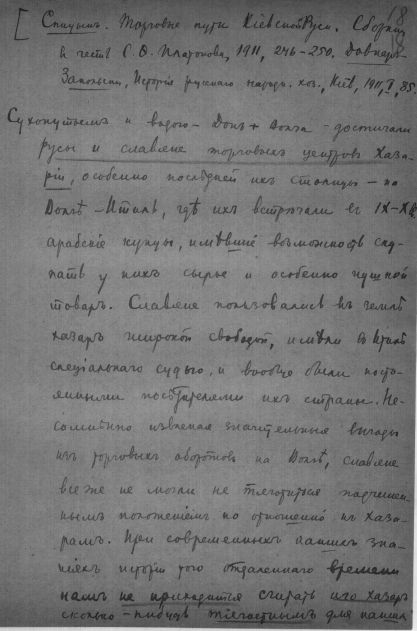 [ Спицынъ. Торговые пути Кіевской Руси. Сборник
в честь С. Ѳ. Платонова, 1911, 246-250. Довнаръ-
Запольскій, Исторія русскаго народн. хоз., Кіевъ, 1911, I, 85.
Сухопутьемъ и водою - Донъ + Волга - достигали
русы и славяне торговыхъ центровъ Хаза-
ріи, особенно послѣдней ихъ столицы - на
Волгѣ - Итиля, гдѣ ихъ встрѣчали въ IX-X в.
арабскіе купцы, имѣвшіе возможность ску-
пать у нихъ сырье и особенно пушной
товаръ. Славяне пользовались въ землѣ
хазаръ широкой свободой, имѣли въ Итилѣ
спеціальнаго судью, и вообще были посто-
янными посѣтителями ихъ страны. Не-
сомнѣнно извлекая значительныя выгоды
изъ торговыхъ оборотовъ на Волгѣ, славяне
все же не могли не тяготиться подчинен-
нымъ положеніемъ по отношенію къ Хаза-
рамъ. При современныхъ нашихъ зна-
ніяхъ исторіи того отдаленнаго времени
намъ не приходится считать иго хазаръ
сколько-нибудь тягостнымъ для нашихъ